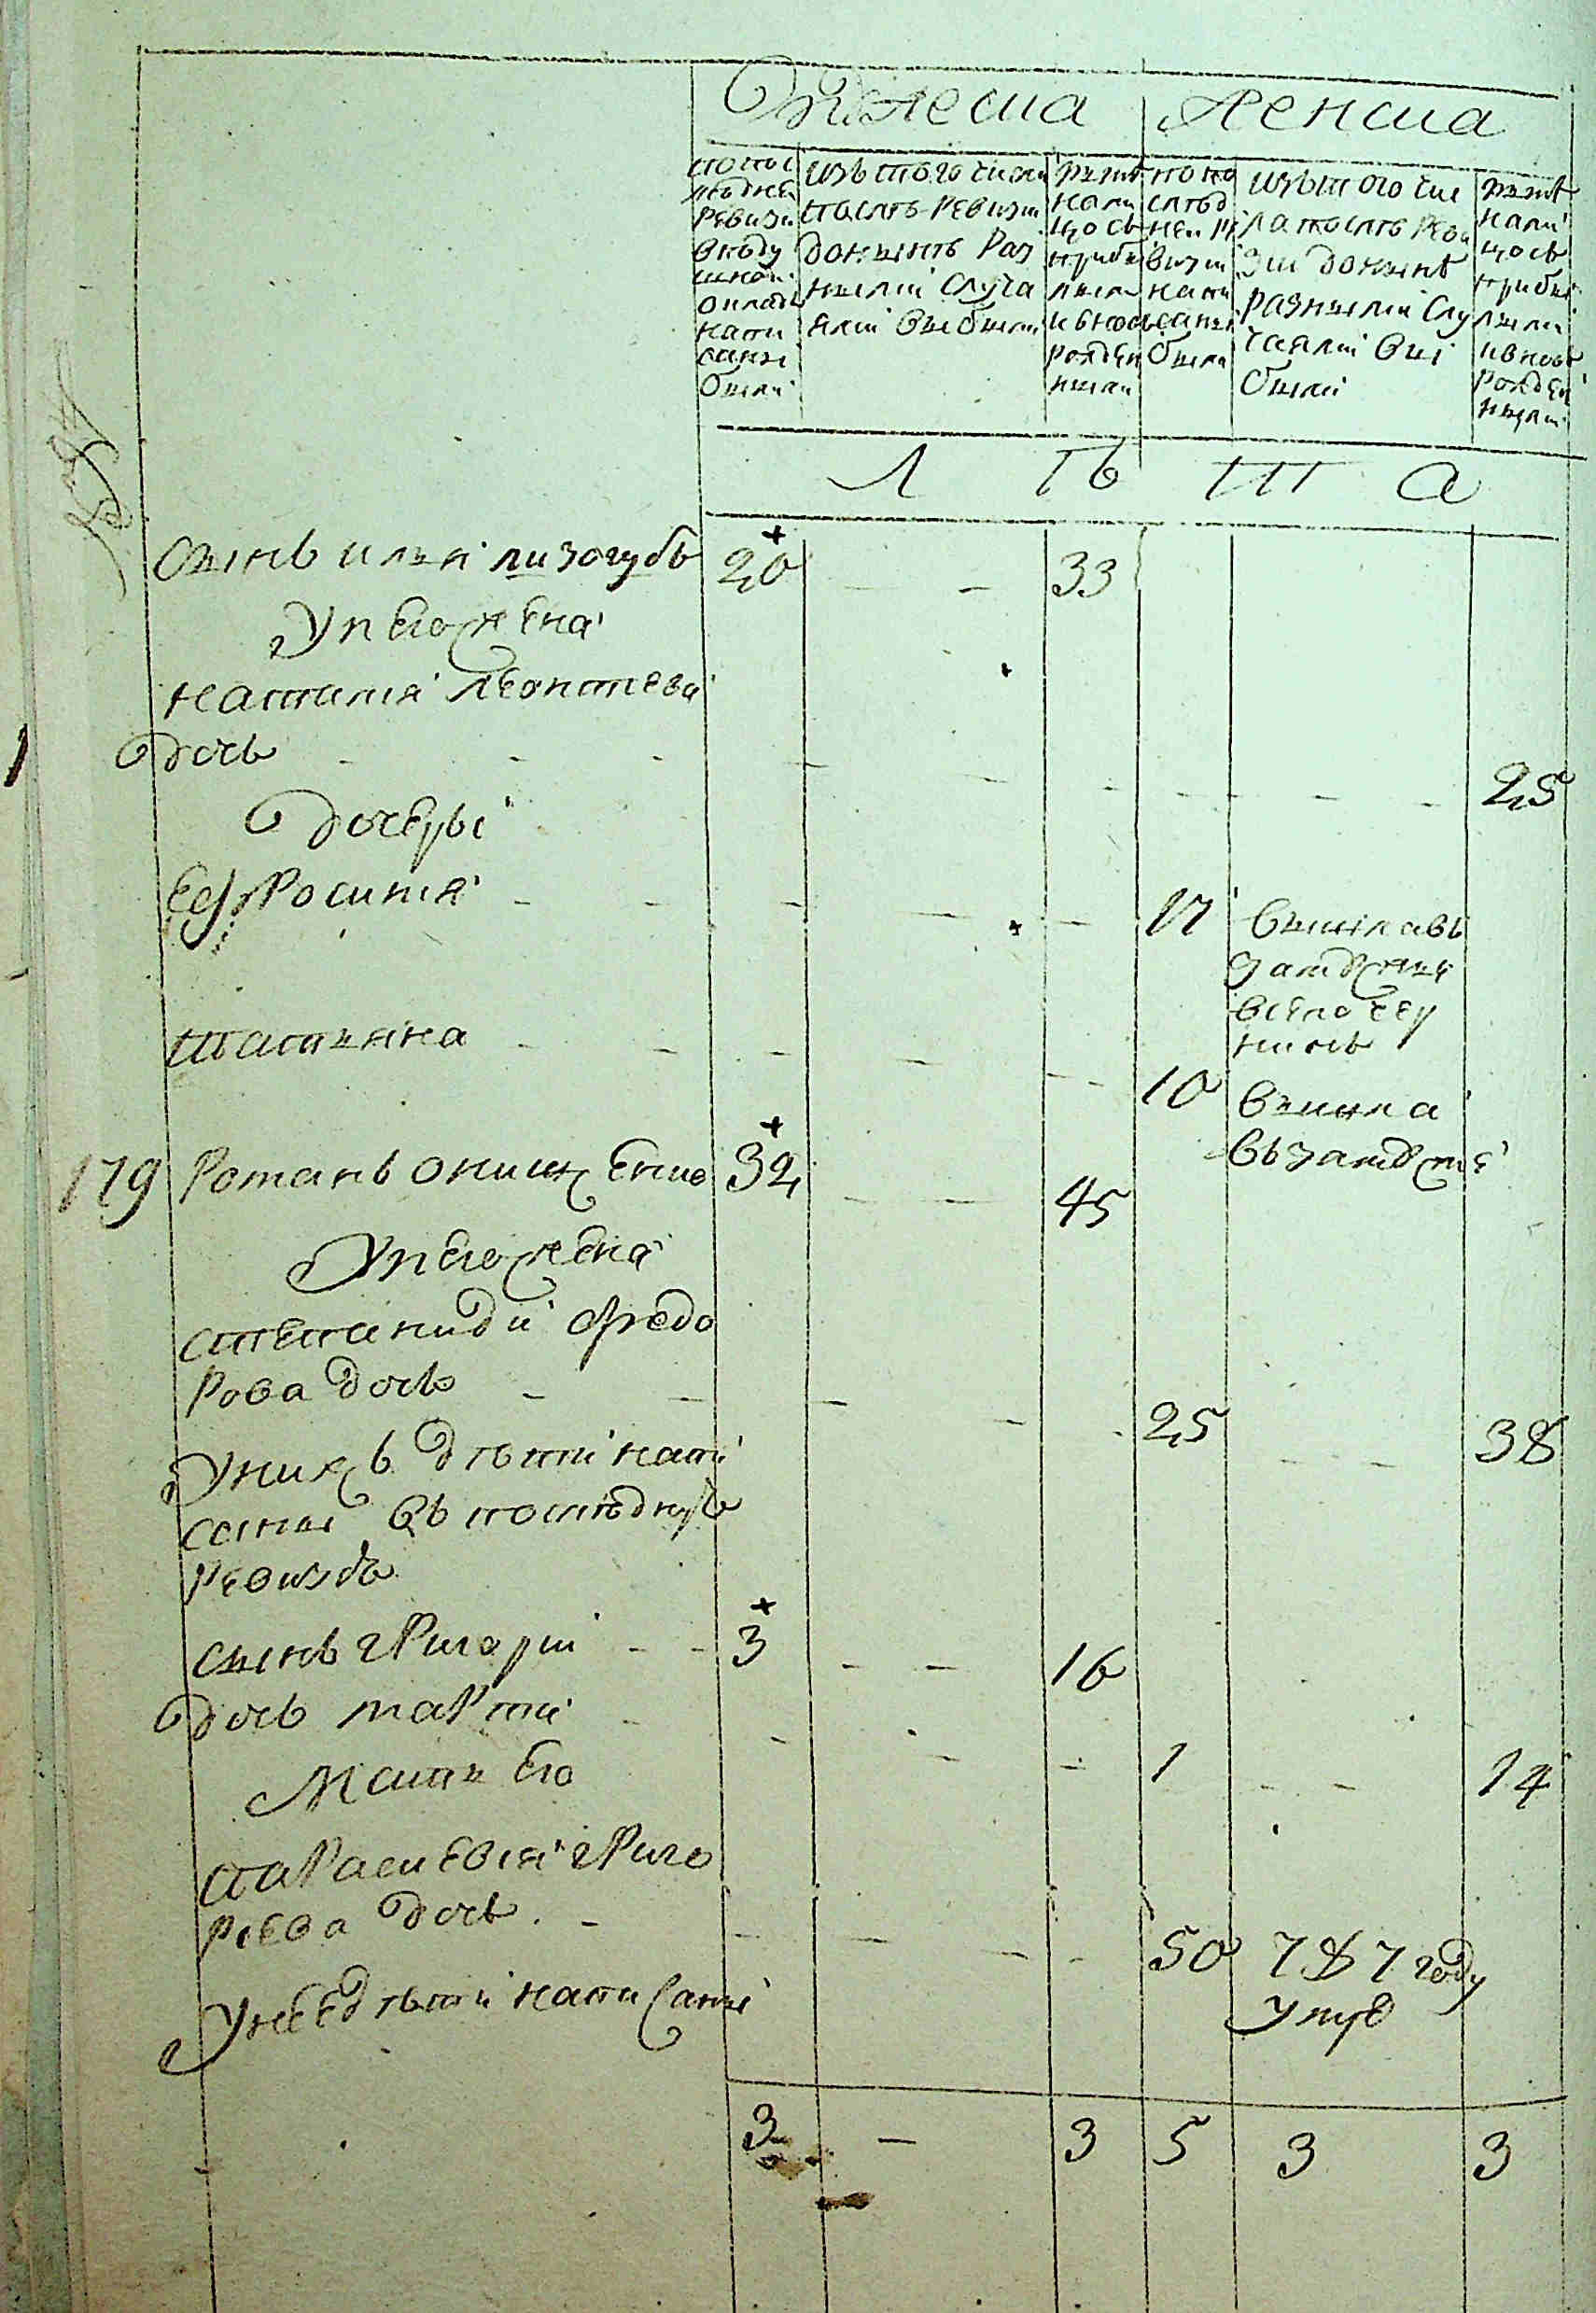 Мужеска Женска
по пос
ледней
ревизи
в поду
шной
оклад
напи
саны
были
изъ того числа
послѣ ревизи
донынѣ раз
ными случа
ями выбыли
нынѣ
нали
цо съ
прибы
лыми
и вновь
рожден
ными
по по
слѣд
ней ре
визи
напи
саны
были
изъ того чис
ла послѣ реви
зи донынѣ
разными слу
чаями вы
были
нынѣ
нали
цо съ
прибы
лыми
и вновь
рожден
ными
Л Ѣ Т А
Сынъ илья лизогубъ 20 - - 33
У него жена
наталия леонтева
дочь - - - - - - - - - 25
дочеры
Ефросиния - - - - - 17 вышла въ
замужые
в село чер
нинь
татияна - - - - - 10 вышла
въ замужые
179 Роман онищенко 32 - - 45
У него жена
степанида федо
рова дочь - - - - 25 - - - 38
У них дѣти напи
саны въ последную
ревизью
сынъ григорий - - 3 - - 16
дочь марта - - - - 1 - - 14
Мать его
параскевия григо
риева дочь - - - - - 50 787 году
умре
У нее дѣти написаны
3 - 3 5 3 3
1